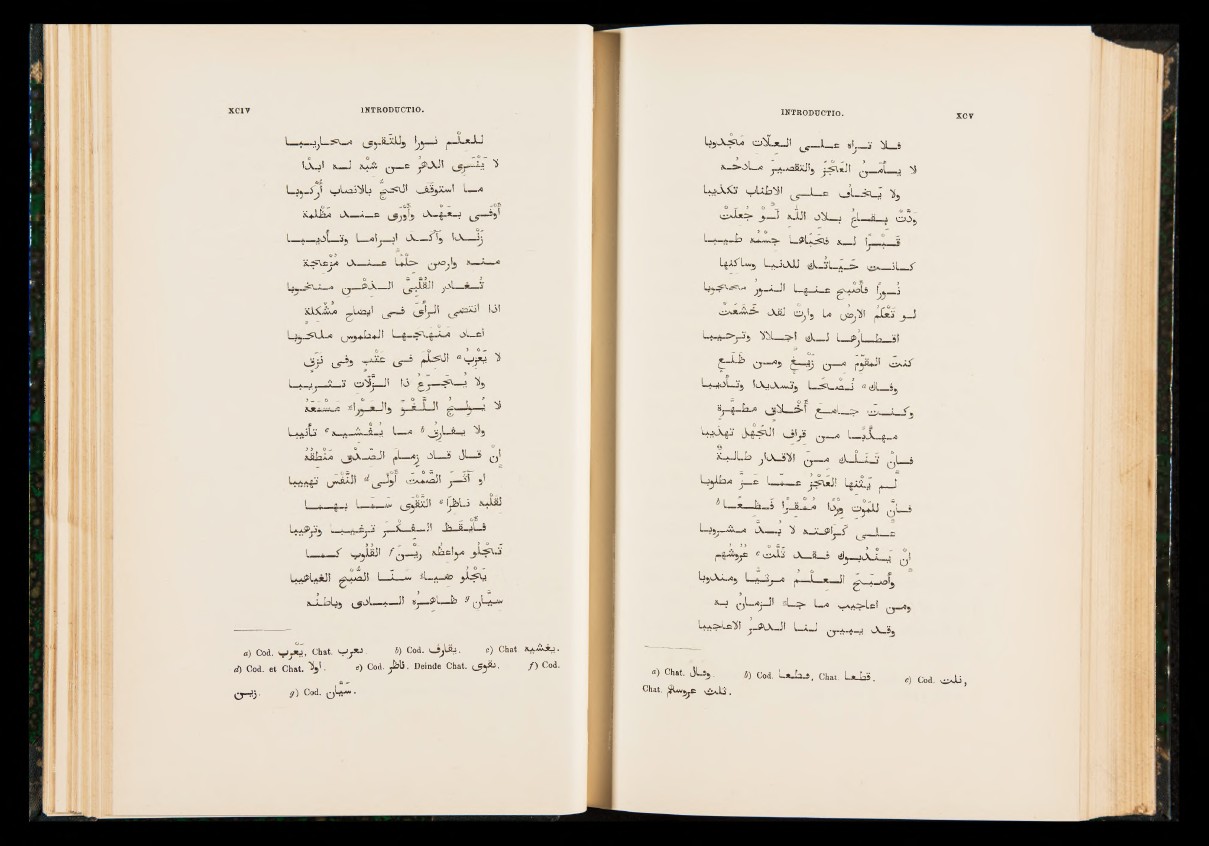 XCIV INTRODUCTIO.
للعلم نورا وللتقوى محاريبا
لا يَشْتَرى الدهرَ عن شبْه له ابدا
ما استوقف الحجّ بالانصاب أُرْكوبا
أَوْفى بعَهْد وأَوْرَى عند مظلمة
زنْدا وآكد ابراما وتأديبا
منه وارصن حلْما عند مُزْعِجة
تُغادر القُلَّبىَّ الذهْن منخوبا
اذا انتضى الرأْىَ فى ايضاح مُشْكلة
اعاد مَنْهَجها المطموس ملحوبا
لا يَعْزُبُ a الحلْم فى عتْب وفى نزق
ولا يُجَرّع ذا الزَّلّات تثريبا
لا يُولج اللَّغْوَ والعوراء مَسْمعَهُ
ولا يقارفُ b ما يُغْشيه c تأنيبا
انْ قال قاد زمام الصدْق منطقُهُ
او آثَرَ الصَّمْت أَوْلَى d النَّفْسَ تهييبا
لقلْبه ناظرا e التَّقْوى سَمَا بهما
فأَيْقَظ الفكْر ترغيبا وترهيبا
تَجْلو مواعظُه رَيْنَ f القُلُوب كما
يَجْلو ضياء سنا الصُّبْح الغياهيبا
سِيّان g ظاهرُه البادى وباطنُه
a) Cod. يَعْرب, Chat. يعرب. b) Cod. يفارف. c) Chat يغشيه.
d) Cod. et Chat. اولا. e) Cod. ناظر. Deinde Chat. يقوى. f) Cod.
زين. g) Cod. سَيّان.
INTRODUCTIO. XCV
فلا تراه على العلّات مَجْدوبا
لا يأمن العَجْزَ والتقصيرَ مادحُه
ولا يخاف على الاطناب تكذيبا
ودّتْ بقاعُ بلاد الله لَوْ جُعلَتْ
قبْرا له فحَباها جسْمُه طيبا
كانت حَياتُك للدنيا وساكنها
نُورًا فأَصْبح عنها النورُ محجوبا
لو تَعْلَمُ الارضُ ما وارتْ لقد خَشَعَتْ
اقطارُها لك اجلالا وترحيبا
كنتَ المقوّم من زَيْغ ومن ظلع
وفاك a نُصْحا وتسديدا وتأديبا
وكنت جامع أَخْلاق مطهّرة
مهذّبا من قراف الجَهْل تهذيبا
فان تَنَلْك من الاقدار طالبة
لم يَثْنها العَجْز عما عزّ مطلوبا
فانّ للمَوْت وِرْدًا مُمْقرًا فظعا b
على كراهته لا بُدّ مشروبا
انْ يَنْدبوك فقد ثُلَّتْ c عُروشُهُم
وأصبح العلْم مرثيّا ومندوبا
ومن اعاجيب ما جاء الزمانُ به
وقد يبين لنا الدهرُ الاعاجيبا
a) Chat. وقال. b) Cod. فظعا, Chat. قطعا. c) Cod. ثلت,
Chat. ثلث عروسهم.